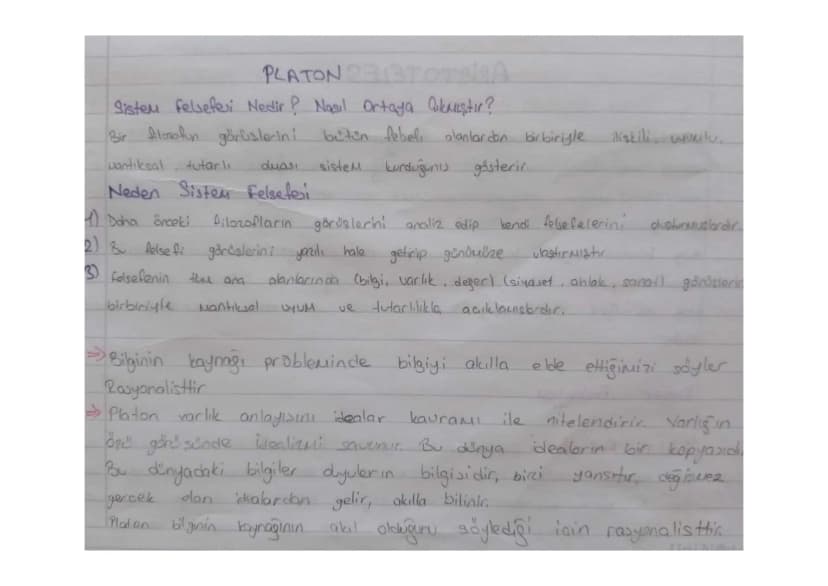 PLATON
Sistem Felsefesi Nedir? Nasıl Ortaya Çıkmıştır?
Bir filozofun görüşlerini bütün felsefi alanlardan birbiriyle ilişkili, uyumlu,
mantıksal tutarlı olması sistem kurduğunu gösterir
Neden Sistem Felsefesi
1) Daha önceki filozofların görüşlerini analiz edip kendi felsefelerini oluşturmuşlardır.
2) Bu felsefi görüşlerini yazılı hale getirip günümüze ulaştırmıştır
3) Felsefenin tüm ana alanlarında (bilgi, varlık, değer) (siyaset, ahlak, sanat) görüşlerini
birbiriyle mantıksal uyum ve tutarlılıkla açıklamışlardır.
⇒ Bilginin kaynağı probleminde bilgiyi akılla elde ettiğimizi söyler
Rasyonalisttir
⇒ Platon varlık anlayışını idealar kavramı ile nitelendirir. Varlığın
özü görüşünde idealizmi savunur. Bu dünya ideaların bir kopyasıdı
Bu dünyadaki bilgiler duyuların bilgisidir, bizi yanıltır, değişmez
gerçek olan idealardan gelir, akılla bilinir.
Platon bilginin kaynağının akıl olduğunu söylediği için rasyonalisttir.